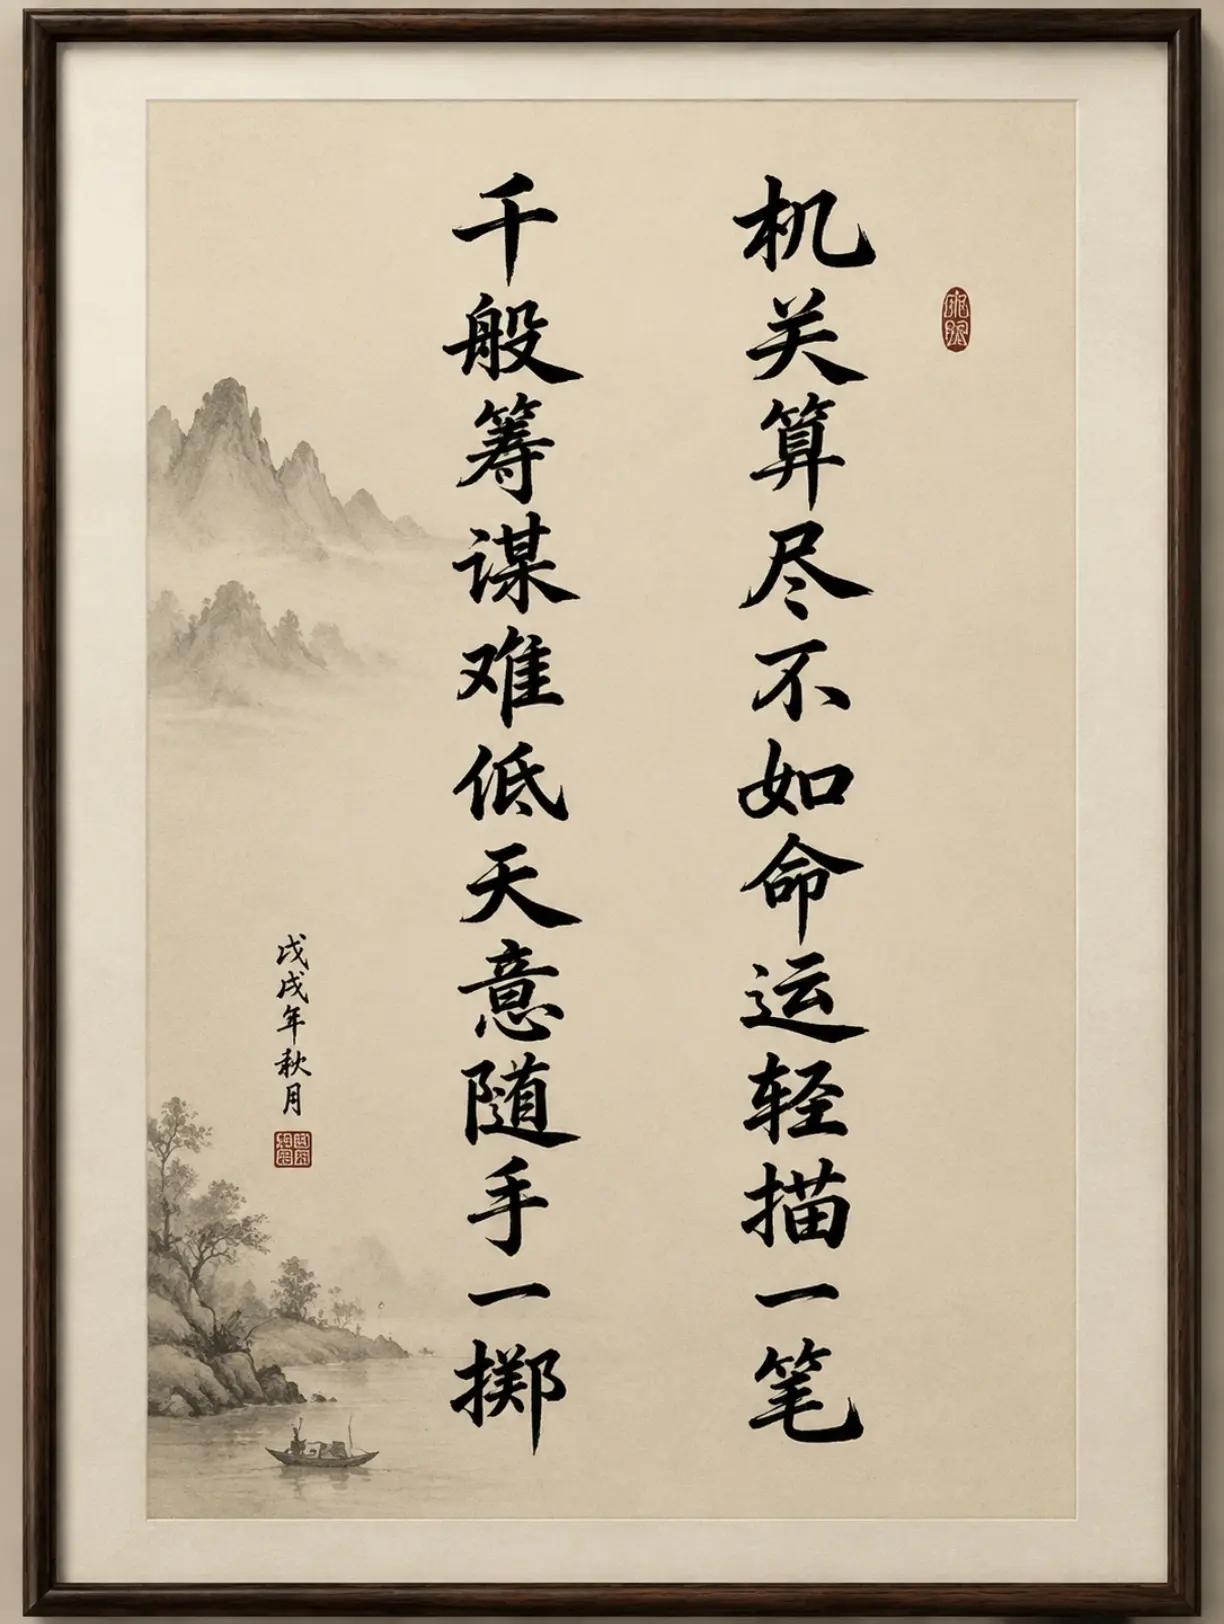 机关算尽不如命运轻描一笔
千般筹谋难低天意随手一掷
戊戌年秋月